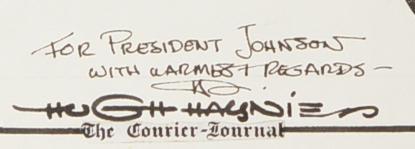 FOR PRESIDENT JOHNSON
WITH WARMEST REGARDS—
HUGH HAYNIE
The Courier-Journal